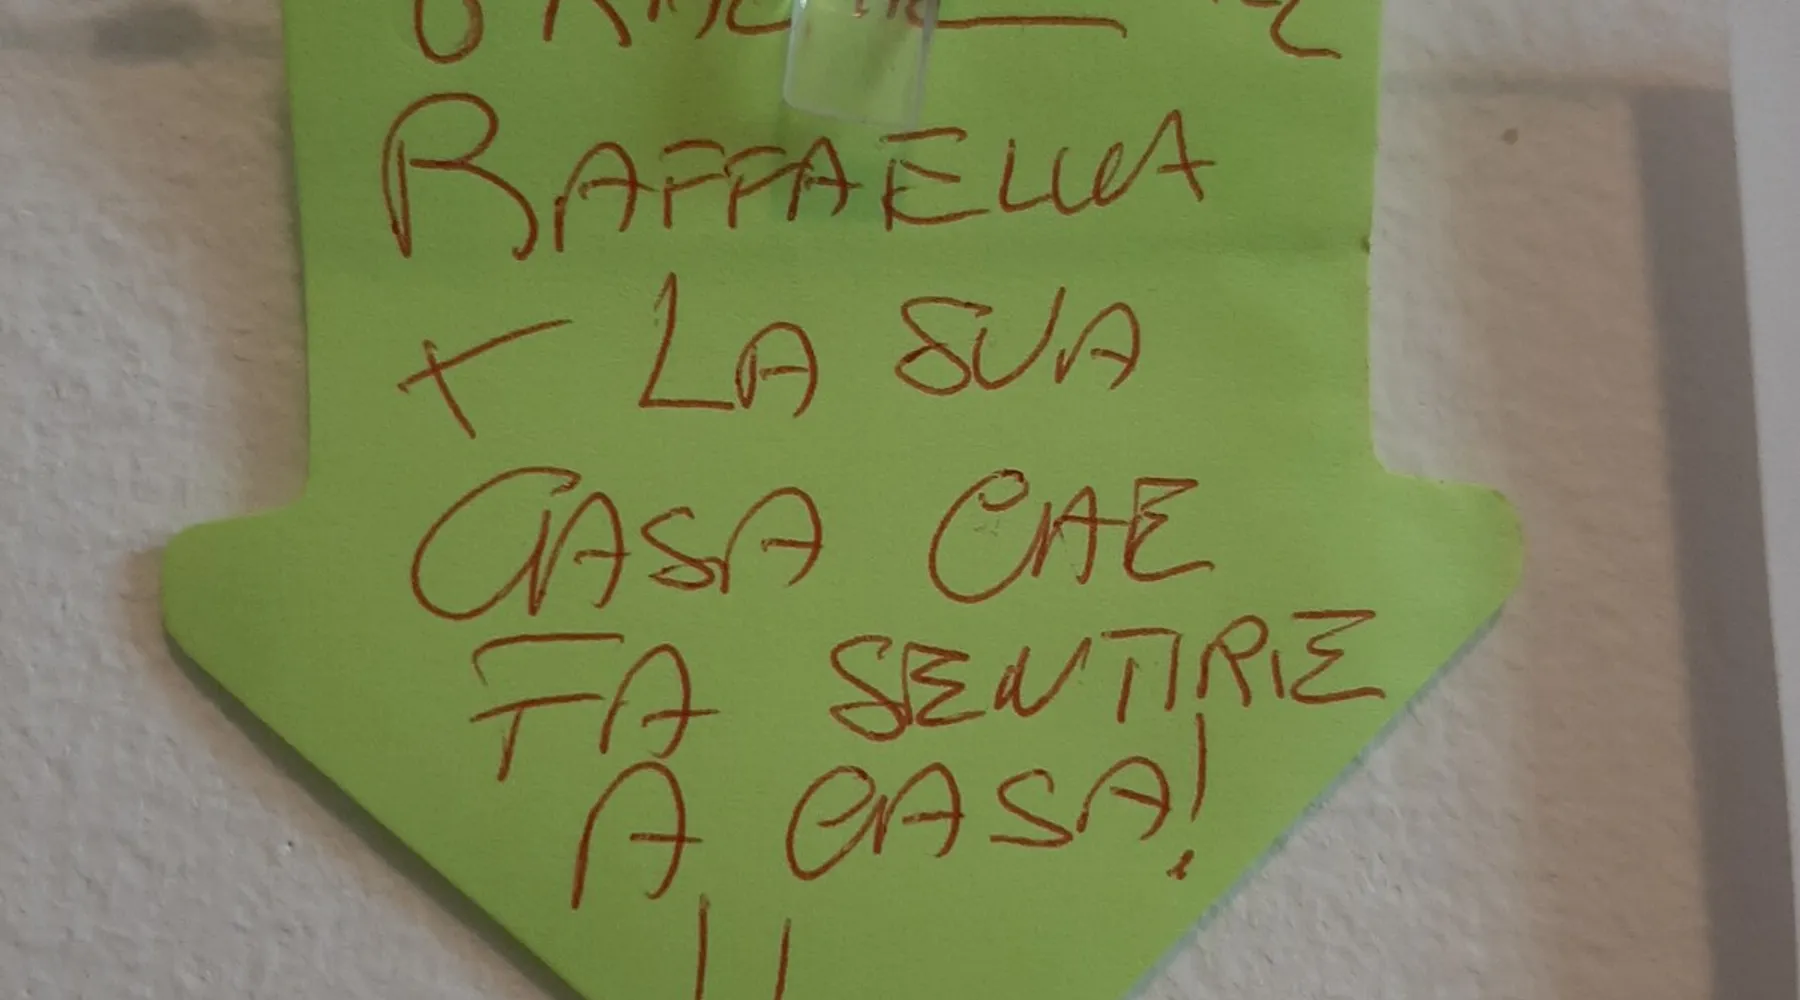 RAFFAELLA
+ LA SUA
CASA CHE
FA SENTIRE
A CASA!